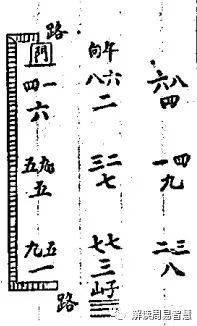 路
門 向午
四一 八六 六八
六 二 四
五九 三二 一四
五 七 九
九五 七七 二三
一 三 八
路 山子
解读周易智慧